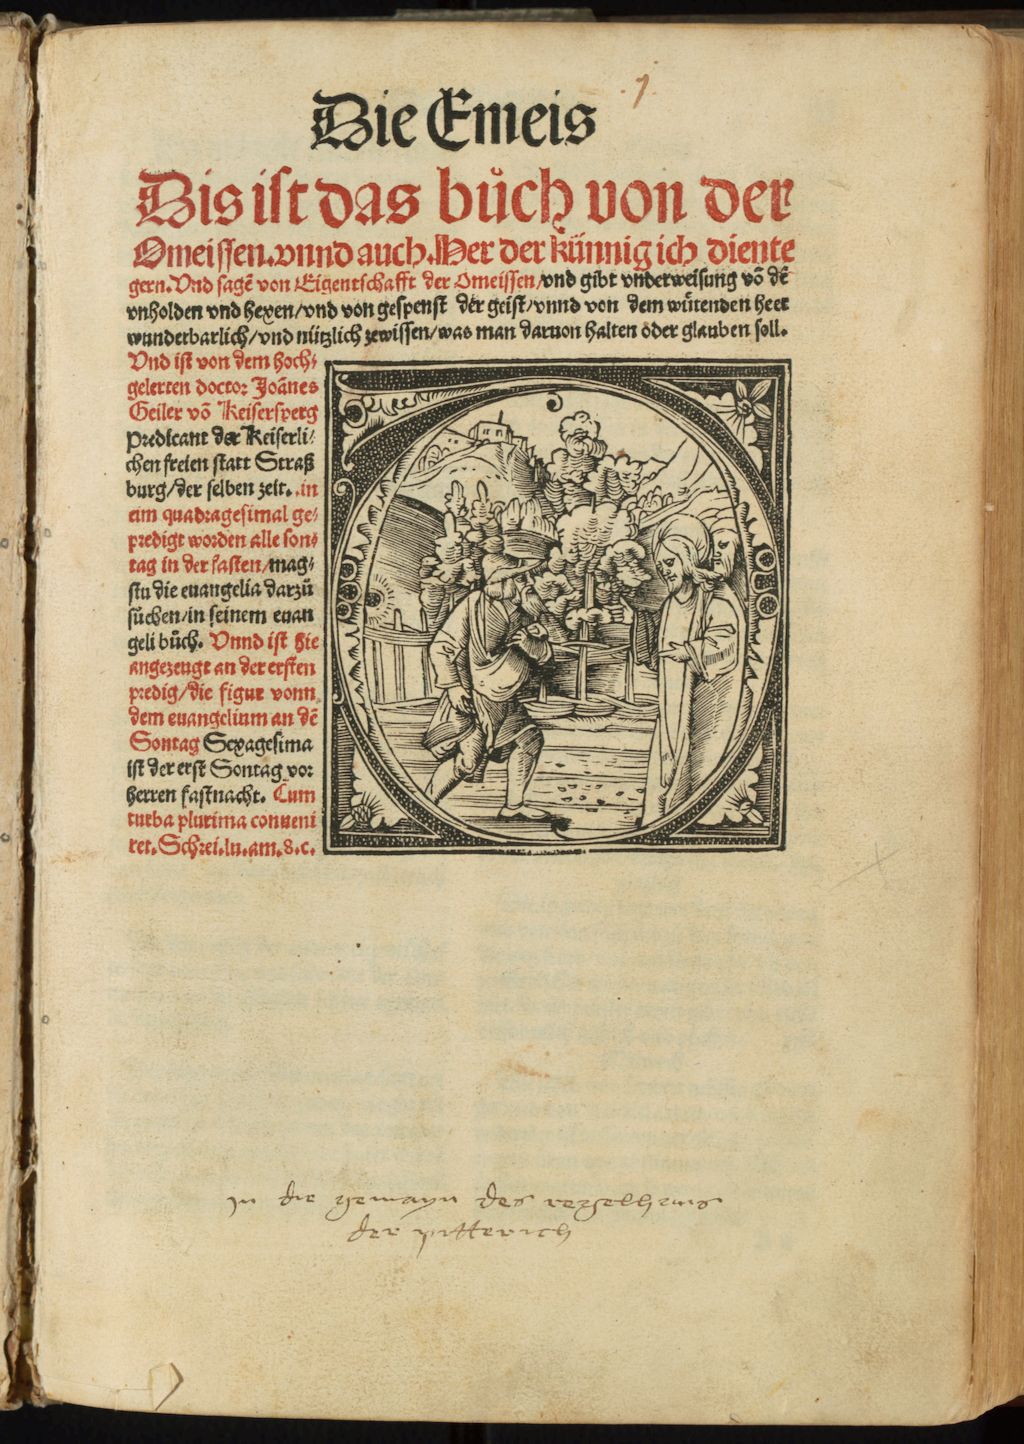 1
Die Emeis
Dis ist das buͦch von der
Omeissen. vnnd auch. Her der künnig ich diente
gern. Vnd sagē von Eigentschafft der Omeissen/vnd gibt vnderweisung vō dē
vnholden vnd hexen/vnd von gespenst der geist/vnnd von dem wütenden heer
wunderbarlich/vnd nützlich zewissen/was man daruon halten oder glauben soll.
Vnd ist von dem hoch⸗
gelerten doctor Joānes
Geiler vō Keisersperg
Predicant der Keiserli⸗
chen freien statt Straß
burg/der selben zeit. in
eim quadragesimal ge⸗
predigt worden alle son⸗
tag in der fasten/mag⸗
stu die euangelia darzuͦ
suͦchen/in seinem euan
geli buͦch. Vnnd ist hie
angezeugt an der ersten
predig/die figur vonn
dem euangelium an dē
Sontag Sexagesima
ist der erst Sontag vor
herren fastnacht. Cum
turba plurima conueni
ret. Schrei. lu. am. 8. c.
In die gemayn des regelhaws
der pitterich